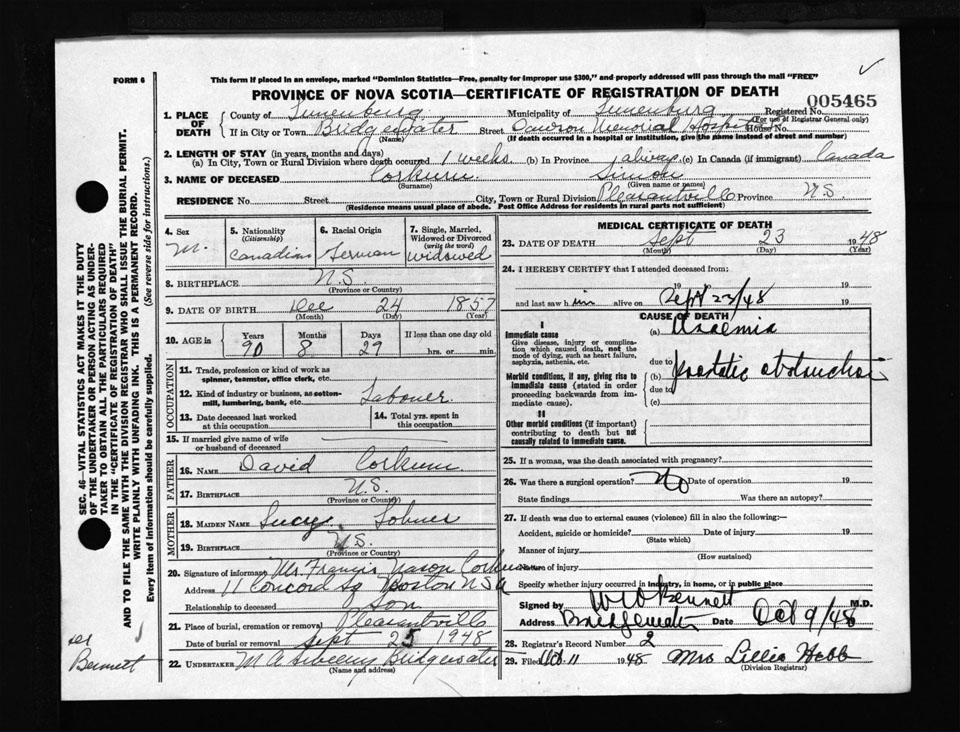 FORM 6
This form if placed in an envelope, marked "Dominion Statistics—Free, penalty for improper use $300," and properly addressed will pass through the mail "FREE"
PROVINCE OF NOVA SCOTIA—CERTIFICATE OF REGISTRATION OF DEATH
005465
1. PLACE OF DEATH
County of Lunenburg. Municipality of Lunenburg Registered No.
(For use of Registrar General only)
If in City or Town Bridgewater Street Memorial Hospital House No.
(Name) (If death occurred in a hospital or institution, give the name instead of street and number)
2. LENGTH OF STAY (in years, months and days)
(a) In City, Town or Rural Division where death occurred 1 weeks. (b) In Province always (c) In Canada (if immigrant) Canada
3. NAME OF DECEASED Corkum Simon
(Surname) (Given name or names)
RESIDENCE No. Street City, Town or Rural Division Pleasantville Province N.S.
(Residence means usual place of abode. Post Office Address for residents in rural parts not sufficient)
4. Sex M.
5. Nationality (Citizenship) Canadian
6. Racial Origin German
7. Single, Married, Widowed or Divorced (write the word) widowed
8. BIRTHPLACE N.S.
(Province or Country)
9. DATE OF BIRTH Dec 24 1857
(Month) (Day) (Year)
10. AGE in Years Months Days If less than one day old
90 8 29 hrs. or min.
OCCUPATION
11. Trade, profession or kind of work as spinner, teamster, office clerk, etc.
12. Kind of industry or business, as cotton-mill, lumbering, bank, etc. Labouer.
13. Date deceased last worked at this occupation
14. Total yrs. spent in this occupation
15. If married give name of wife or husband of deceased
FATHER
16. NAME David Corkum.
17. BIRTHPLACE N.S.
(Province or Country)
MOTHER
18. MAIDEN NAME Lucy.
19. BIRTHPLACE N.S.
(Province or Country)
20. Signature of informant Mr Francis Nason Corkum
Address 11 Concord Sq Boston
Relationship to deceased Son
21. Place of burial, cremation or removal Pleasantville
Date of burial or removal Sept 25 1948
22. UNDERTAKER M A Sweeny Bridgewater
(Name and address)
MEDICAL CERTIFICATE OF DEATH
23. DATE OF DEATH Sept 23 1948
(Month) (Day) (Year)
24. I HEREBY CERTIFY that I attended deceased from:
19 19
and last saw him alive on Sept 23/48 19
CAUSE OF DEATH
I
Immediate cause
Give disease, injury or complication which caused death, not the mode of dying, such as heart failure, asphyxia, asthenia, etc.
(a) Uraemia
due to
Morbid conditions, if any, giving rise to immediate cause (stated in order proceeding backwards from immediate cause).
(b) Prostatic obstruction
due to
(c)
II
Other morbid conditions (if important) contributing to death but not causally related to immediate cause.
25. If a woman, was the death associated with pregnancy?
26. Was there a surgical operation? No Date of operation 19
State findings Was there an autopsy?
27. If death was due to external causes (violence) fill in also the following:—
Accident, suicide or homicide? Date of injury 19
(State which)
Manner of injury
(How sustained)
Nature of injury
Specify whether injury occurred in industry, in home, or in public place
Signed by W W Bennett M.D.
Address Bridgewater Date Oct 9/48
28. Registrar's Record Number 2
29. Filed Oct. 11 1948 Mrs Lillia Hebb
(Division Registrar)
SEC. 46—VITAL STATISTICS ACT MAKES IT THE DUTY
OF THE UNDERTAKER OR PERSON ACTING AS UNDERTAKER
TO OBTAIN ALL THE PARTICULARS REQUIRED
IN THE "CERTIFICATE OF REGISTRATION OF DEATH"
AND TO FILE THE SAME WITH THE DIVISION REGISTRAR WHO SHALL ISSUE THE BURIAL PERMIT.
WRITE PLAINLY WITH UNFADING INK. THIS IS A PERMANENT RECORD.
Every item of information should be carefully supplied. (See reverse side for instructions.)
Bennett